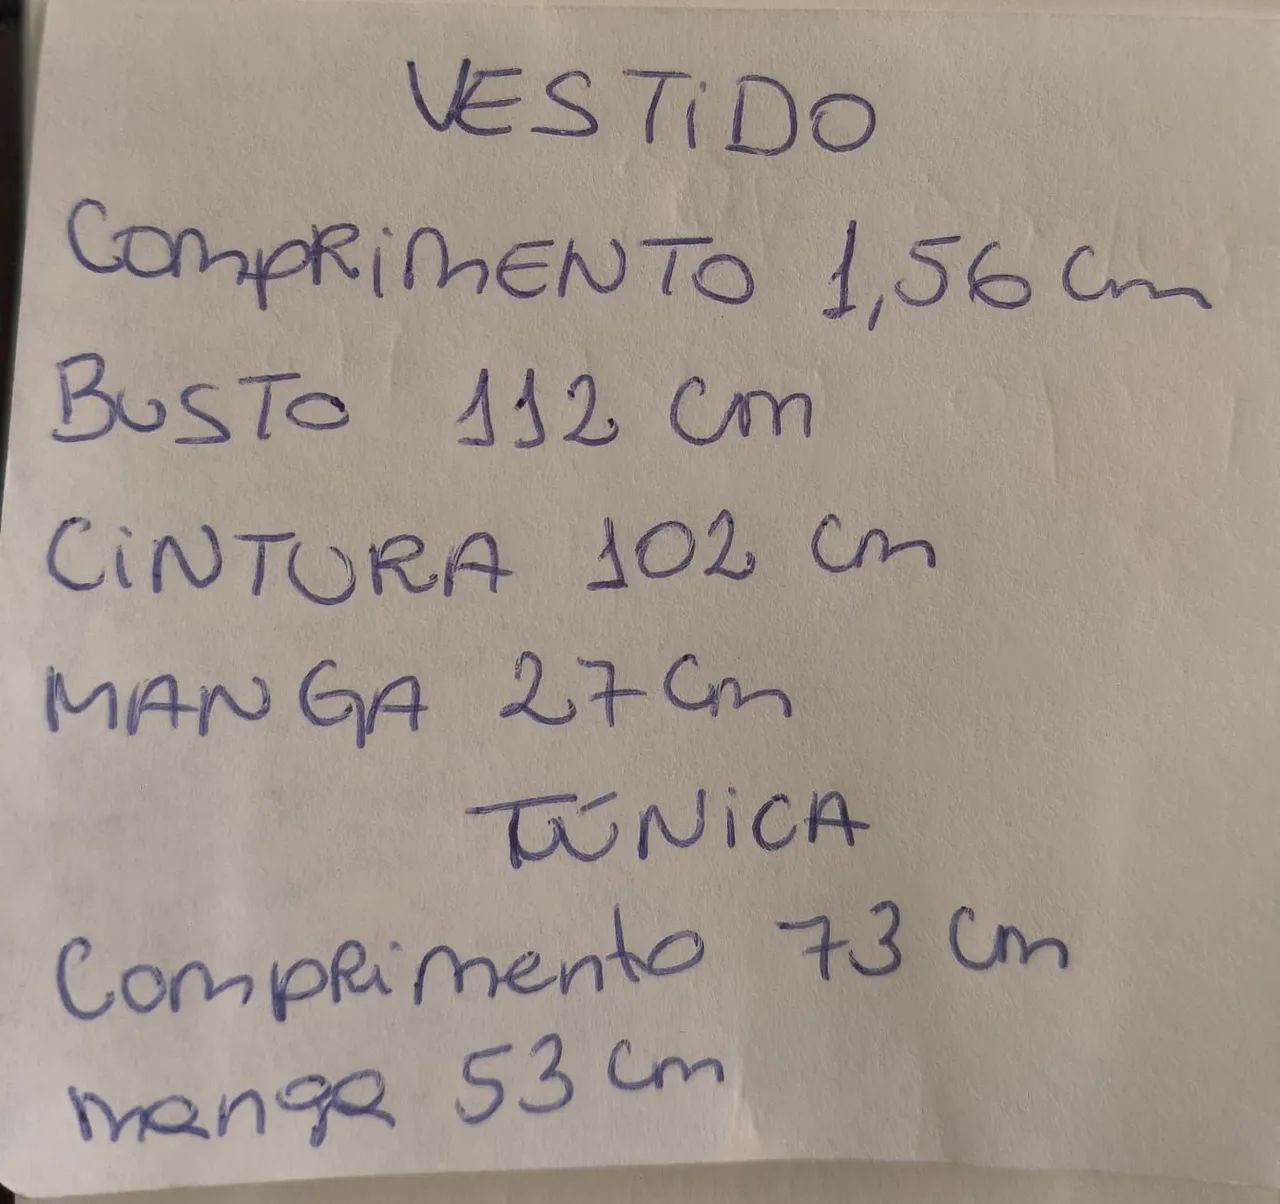 VESTIDO
COMPRIMENTO 1,56 cm
BUSTO 112 cm
CINTURA 102 cm
MANGA 27 cm
TÚNICA
Comprimento 73 cm
manga 53 cm